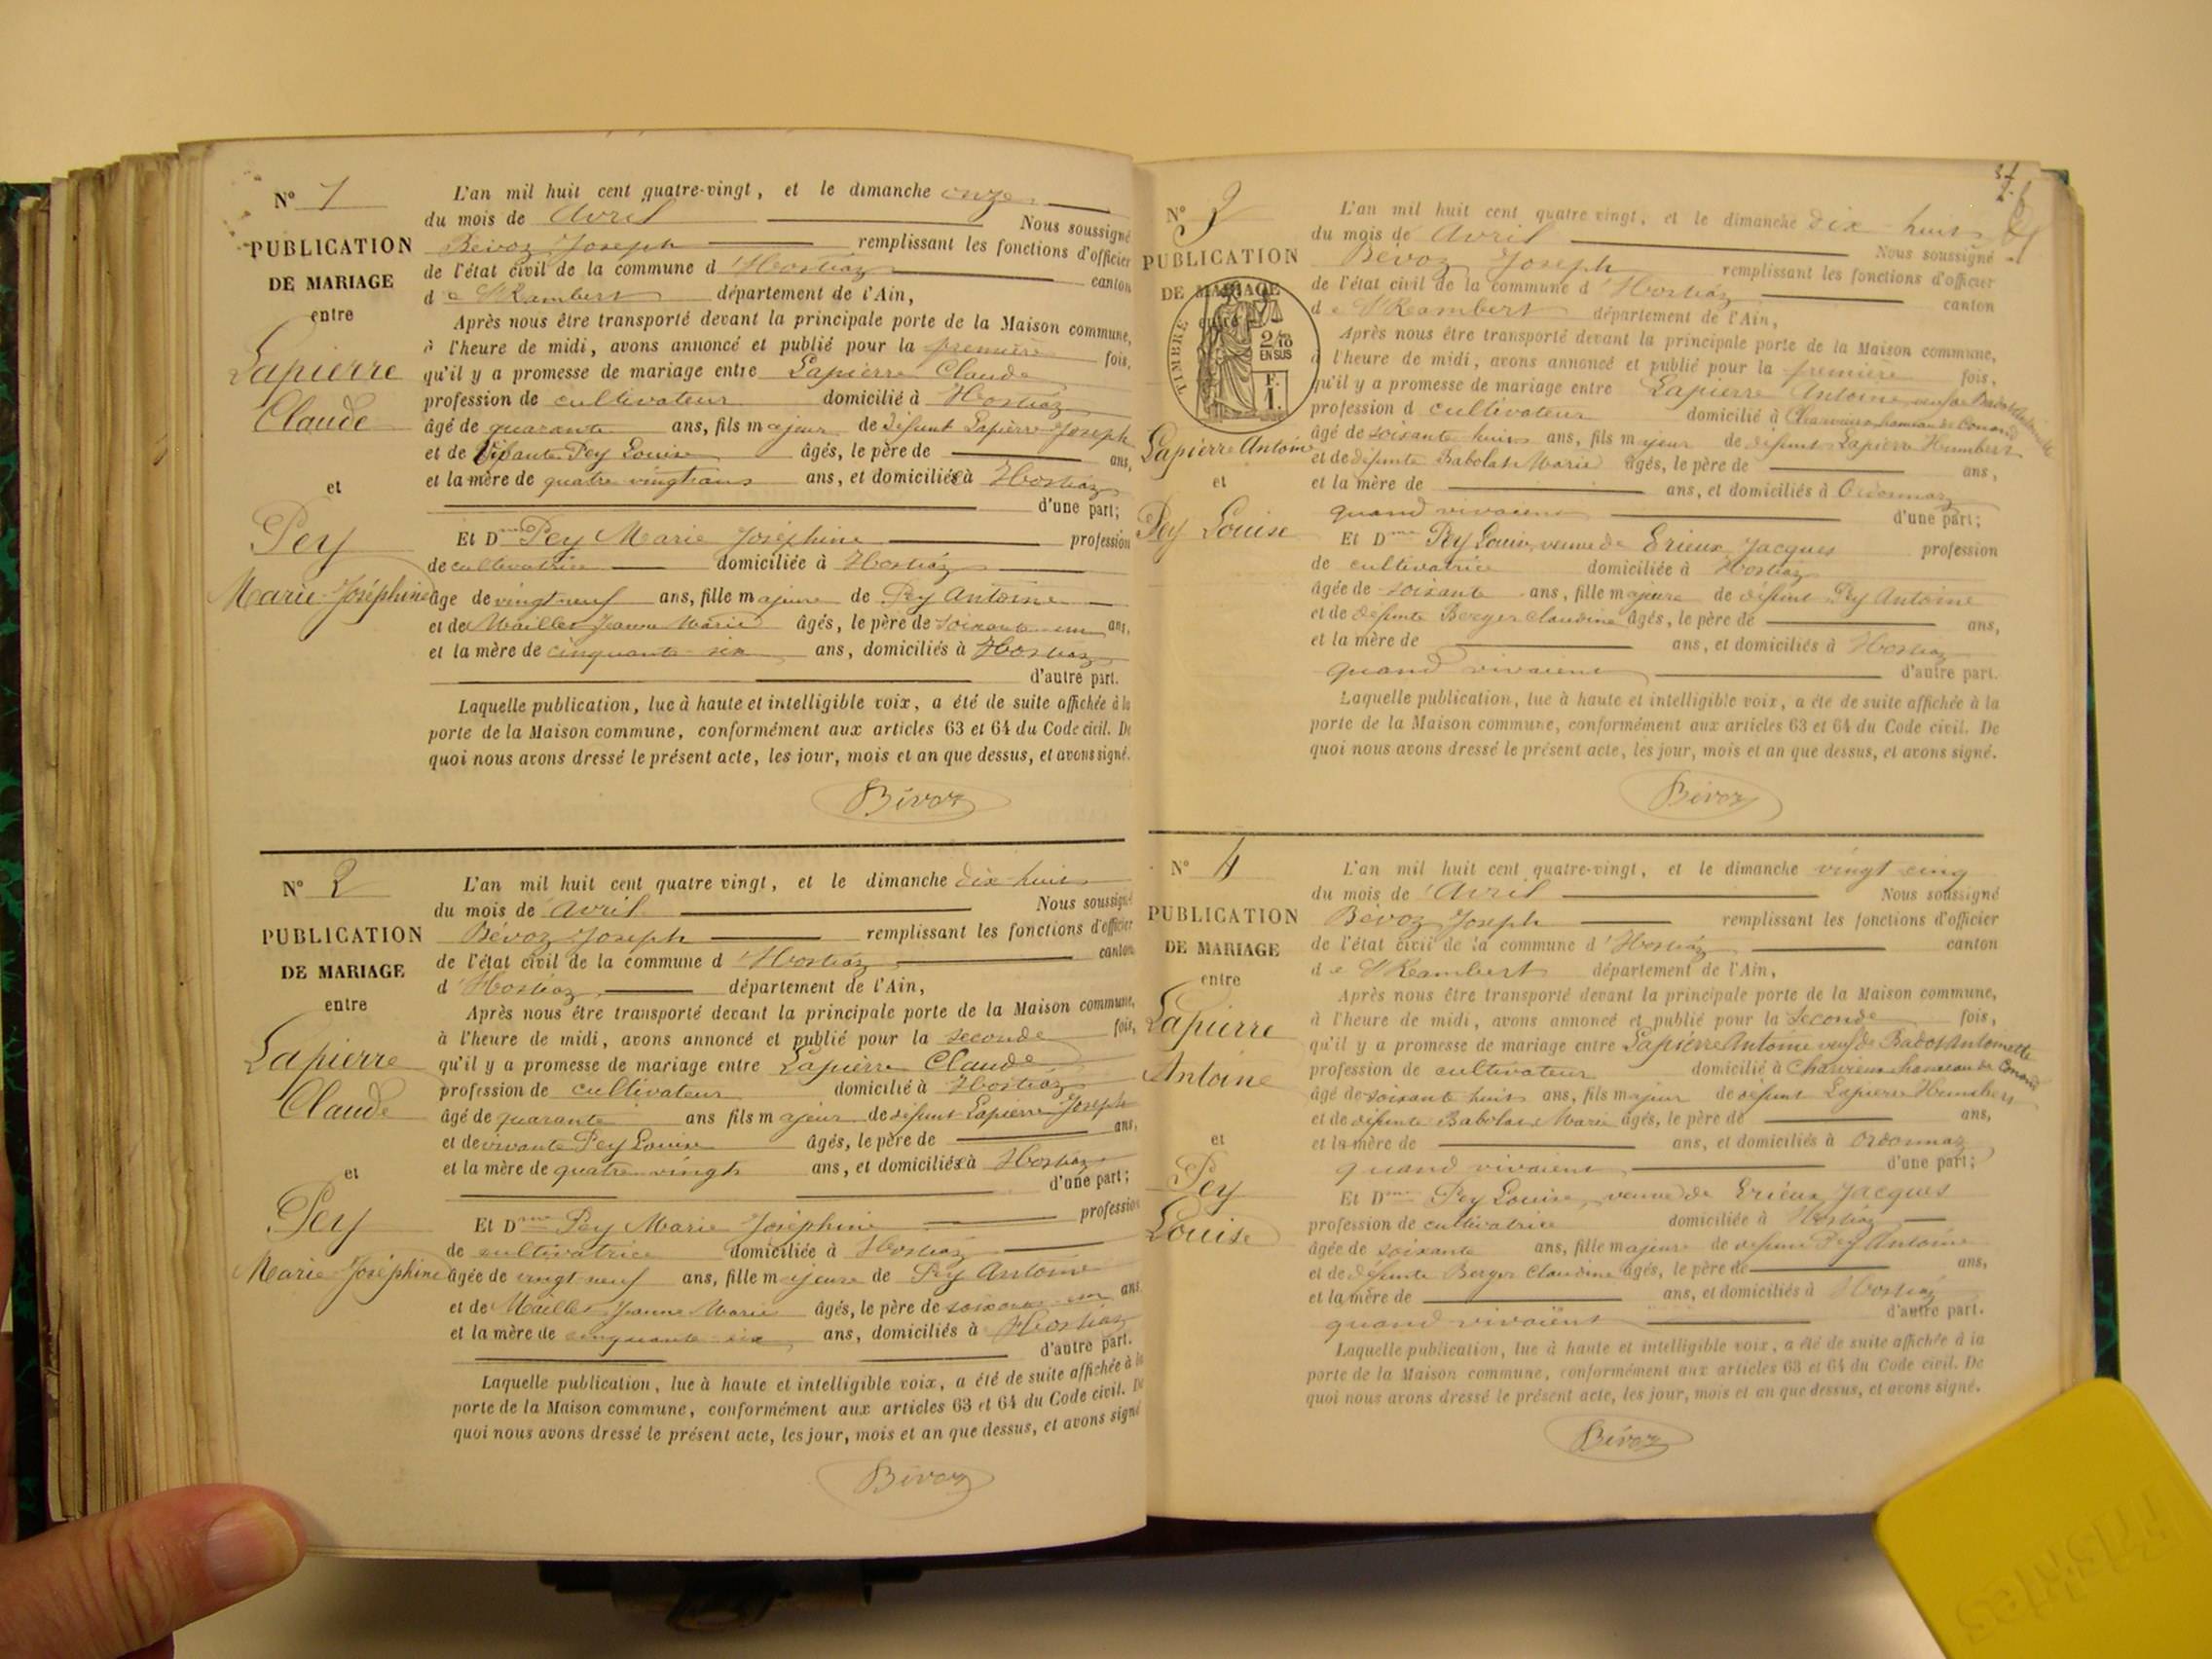 N° 1
PUBLICATION
DE MARIAGE
entre
Lapierre
Claude
et
Pey
Marie Joséphine
L'an mil huit cent quatre-vingt, et le dimanche onze
du mois de Avril Nous soussigné
Bévoz Joseph remplissant les fonctions d'officier
de l'état civil de la commune d'Hostiaz canton
de St Rambert département de l'Ain,
Après nous être transporté devant la principale porte de la Maison commune,
à l'heure de midi, avons annoncé et publié pour la première fois,
qu'il y a promesse de mariage entre Lapierre Claude
profession de cultivateur domicilié à Hostiaz
âgé de quarante ans, fils majeur de défunt Lapierre Joseph
et de Vivante Pey Louise âgés, le père de ans,
et la mère de quatre vingt ans, et domiciliée à Hostiaz
d'une part;
Et Dme Pey Marie Joséphine profession
de cultivatrice domiciliée à Hostiaz
âge de vingt neuf ans, fille majeure de Pey Antoine
et de Maillet Jeanne Marie âgés, le père de soixante un ans,
et la mère de cinquante six ans, domiciliés à Hostiaz
d'autre part.
Laquelle publication, lue à haute et intelligible voix, a été de suite affichée à la
porte de la Maison commune, conformément aux articles 63 et 64 du Code civil. De
quoi nous avons dressé le présent acte, les jour, mois et an que dessus, et avons signé.
Bévoz
N° 2
PUBLICATION
DE MARIAGE
entre
Lapierre
Claude
et
Pey
Marie Joséphine
L'an mil huit cent quatre vingt, et le dimanche dix huit
du mois de Avril Nous soussigné
Bévoz Joseph remplissant les fonctions d'officier
de l'état civil de la commune d'Hostiaz canton
d'Hostiaz département de l'Ain,
Après nous être transporté devant la principale porte de la Maison commune,
à l'heure de midi, avons annoncé et publié pour la seconde fois,
qu'il y a promesse de mariage entre Lapierre Claude
profession de cultivateur domicilié à Hostiaz
âgé de quarante ans fils majeur de défunt Lapierre Joseph
et de vivante Pey Louise âgés, le père de ans,
et la mère de quatre vingt ans, et domiciliée à Hostiaz
d'une part;
Et Dme Pey Marie Joséphine profession
de cultivatrice domiciliée à Hostiaz
âgée de vingt neuf ans, fille majeure de Pey Antoine
et de Maillet Jeanne Marie âgés, le père de soixante un ans
et la mère de cinquante six ans, domiciliés à Hostiaz
d'autre part.
Laquelle publication, lue à haute et intelligible voix, a été de suite affichée à la
porte de la Maison commune, conformément aux articles 63 et 64 du Code civil. De
quoi nous avons dressé le présent acte, les jour, mois et an que dessus, et avons signé
Bévoz
N° 3
PUBLICATION
DE MARIAGE
TIMBRE
2/10
EN SUS
F.
1.
Lapierre Antoine
et
Pey Louise
L'an mil huit cent quatre vingt, et le dimanche dix huit
du mois de Avril Nous soussigné
Bévoz Joseph remplissant les fonctions d'officier
de l'état civil de la commune d'Hostiaz canton
de St Rambert département de l'Ain,
Après nous être transporté devant la principale porte de la Maison commune,
à l'heure de midi, avons annoncé et publié pour la première fois,
qu'il y a promesse de mariage entre Lapierre Antoine veuf de Badot Antoinette
profession d cultivateur domicilié à Charvieux hameau de Conand
âgé de soixante huit ans, fils majeur de défunt Lapierre Humbert
et de défunte Babolat Marie âgés, le père de ans,
et la mère de ans, et domiciliés à Ordonnaz
quand vivaient d'une part;
Et Dme Pey Louise, veuve de Erieux Jacques profession
de cultivatrice domiciliée à Hostiaz
âgée de soixante ans, fille majeure de défunt Pey Antoine
et de défunte Berger Claudine âgés, le père de ans,
et la mère de ans, et domiciliés à Hostiaz
quand vivaient d'autre part.
Laquelle publication, lue à haute et intelligible voix, a été de suite affichée à la
porte de la Maison commune, conformément aux articles 63 et 64 du Code civil. De
quoi nous avons dressé le présent acte, les jour, mois et an que dessus, et avons signé.
Bévoz
N° 4
PUBLICATION
DE MARIAGE
entre
Lapierre
Antoine
et
Pey
Louise
L'an mil huit cent quatre-vingt, et le dimanche vingt cinq
du mois de Avril Nous soussigné
Bévoz Joseph remplissant les fonctions d'officier
de l'état civil de la commune d'Hostiaz canton
de St Rambert département de l'Ain,
Après nous être transporté devant la principale porte de la Maison commune,
à l'heure de midi, avons annoncé et publié pour la seconde fois,
qu'il y a promesse de mariage entre Lapierre Antoine veuf de Badot Antoinette
profession de cultivateur domicilié à Charvieux hameau de Conand
âgé de soixante huit ans, fils majeur de défunt Lapierre Humbert
et de défunte Babolat Marie âgés, le père de ans,
et la mère de ans, et domiciliés à Ordonnaz
quand vivaient d'une part;
Et Dme Pey Louise, veuve de Erieux Jacques
profession de cultivatrice domiciliée à Hostiaz
âgée de soixante ans, fille majeure de défunt Pey Antoine
et de défunte Berger Claudine âgés, le père de ans,
et la mère de ans, et domiciliés à Hostiaz
quand vivaient d'autre part.
Laquelle publication, lue à haute et intelligible voix, a été de suite affichée à la
porte de la Maison commune, conformément aux articles 63 et 64 du Code civil. De
quoi nous avons dressé le présent acte, les jour, mois et an que dessus, et avons signé.
Bévoz